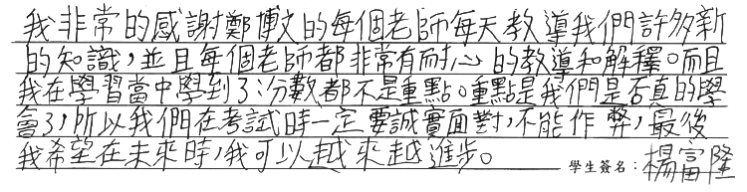 我非常的感謝鄭博文的每個老師每天教導我們許多新
的知識，並且每個老師都非常有耐心的教導和解釋。而且
我在學習當中學到了：分數都不是重點。重點是我們是否真的學
會了，所以我們在考試時一定要誠實面對，不能作弊，最後
我希望在未來時，我可以越來越進步。 學生簽名：楊富隆